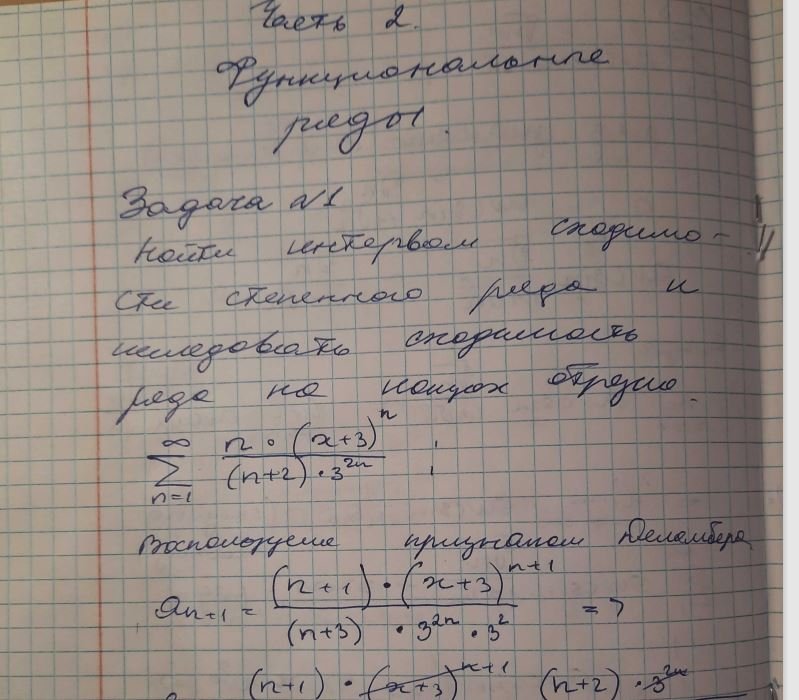 Часть 2.
Функциональные
ряды.
Задача №1
Найти интервал сходимо-
сти степенного ряда и
исследовать сходимость
ряда на концах отрезка.
∞ n · (x+3)^n
∑ ——————— ;
n=1 (n+2) · 3^{2n}
Воспользуемся признаком Даламбера
a_{n+1} = \frac{(n+1) · (x+3)^{n+1}}{(n+3) · 3^{2n} · 3^2} =>
(n+1) · (x+3)^{n+1} (n+2) · 3^{2n}